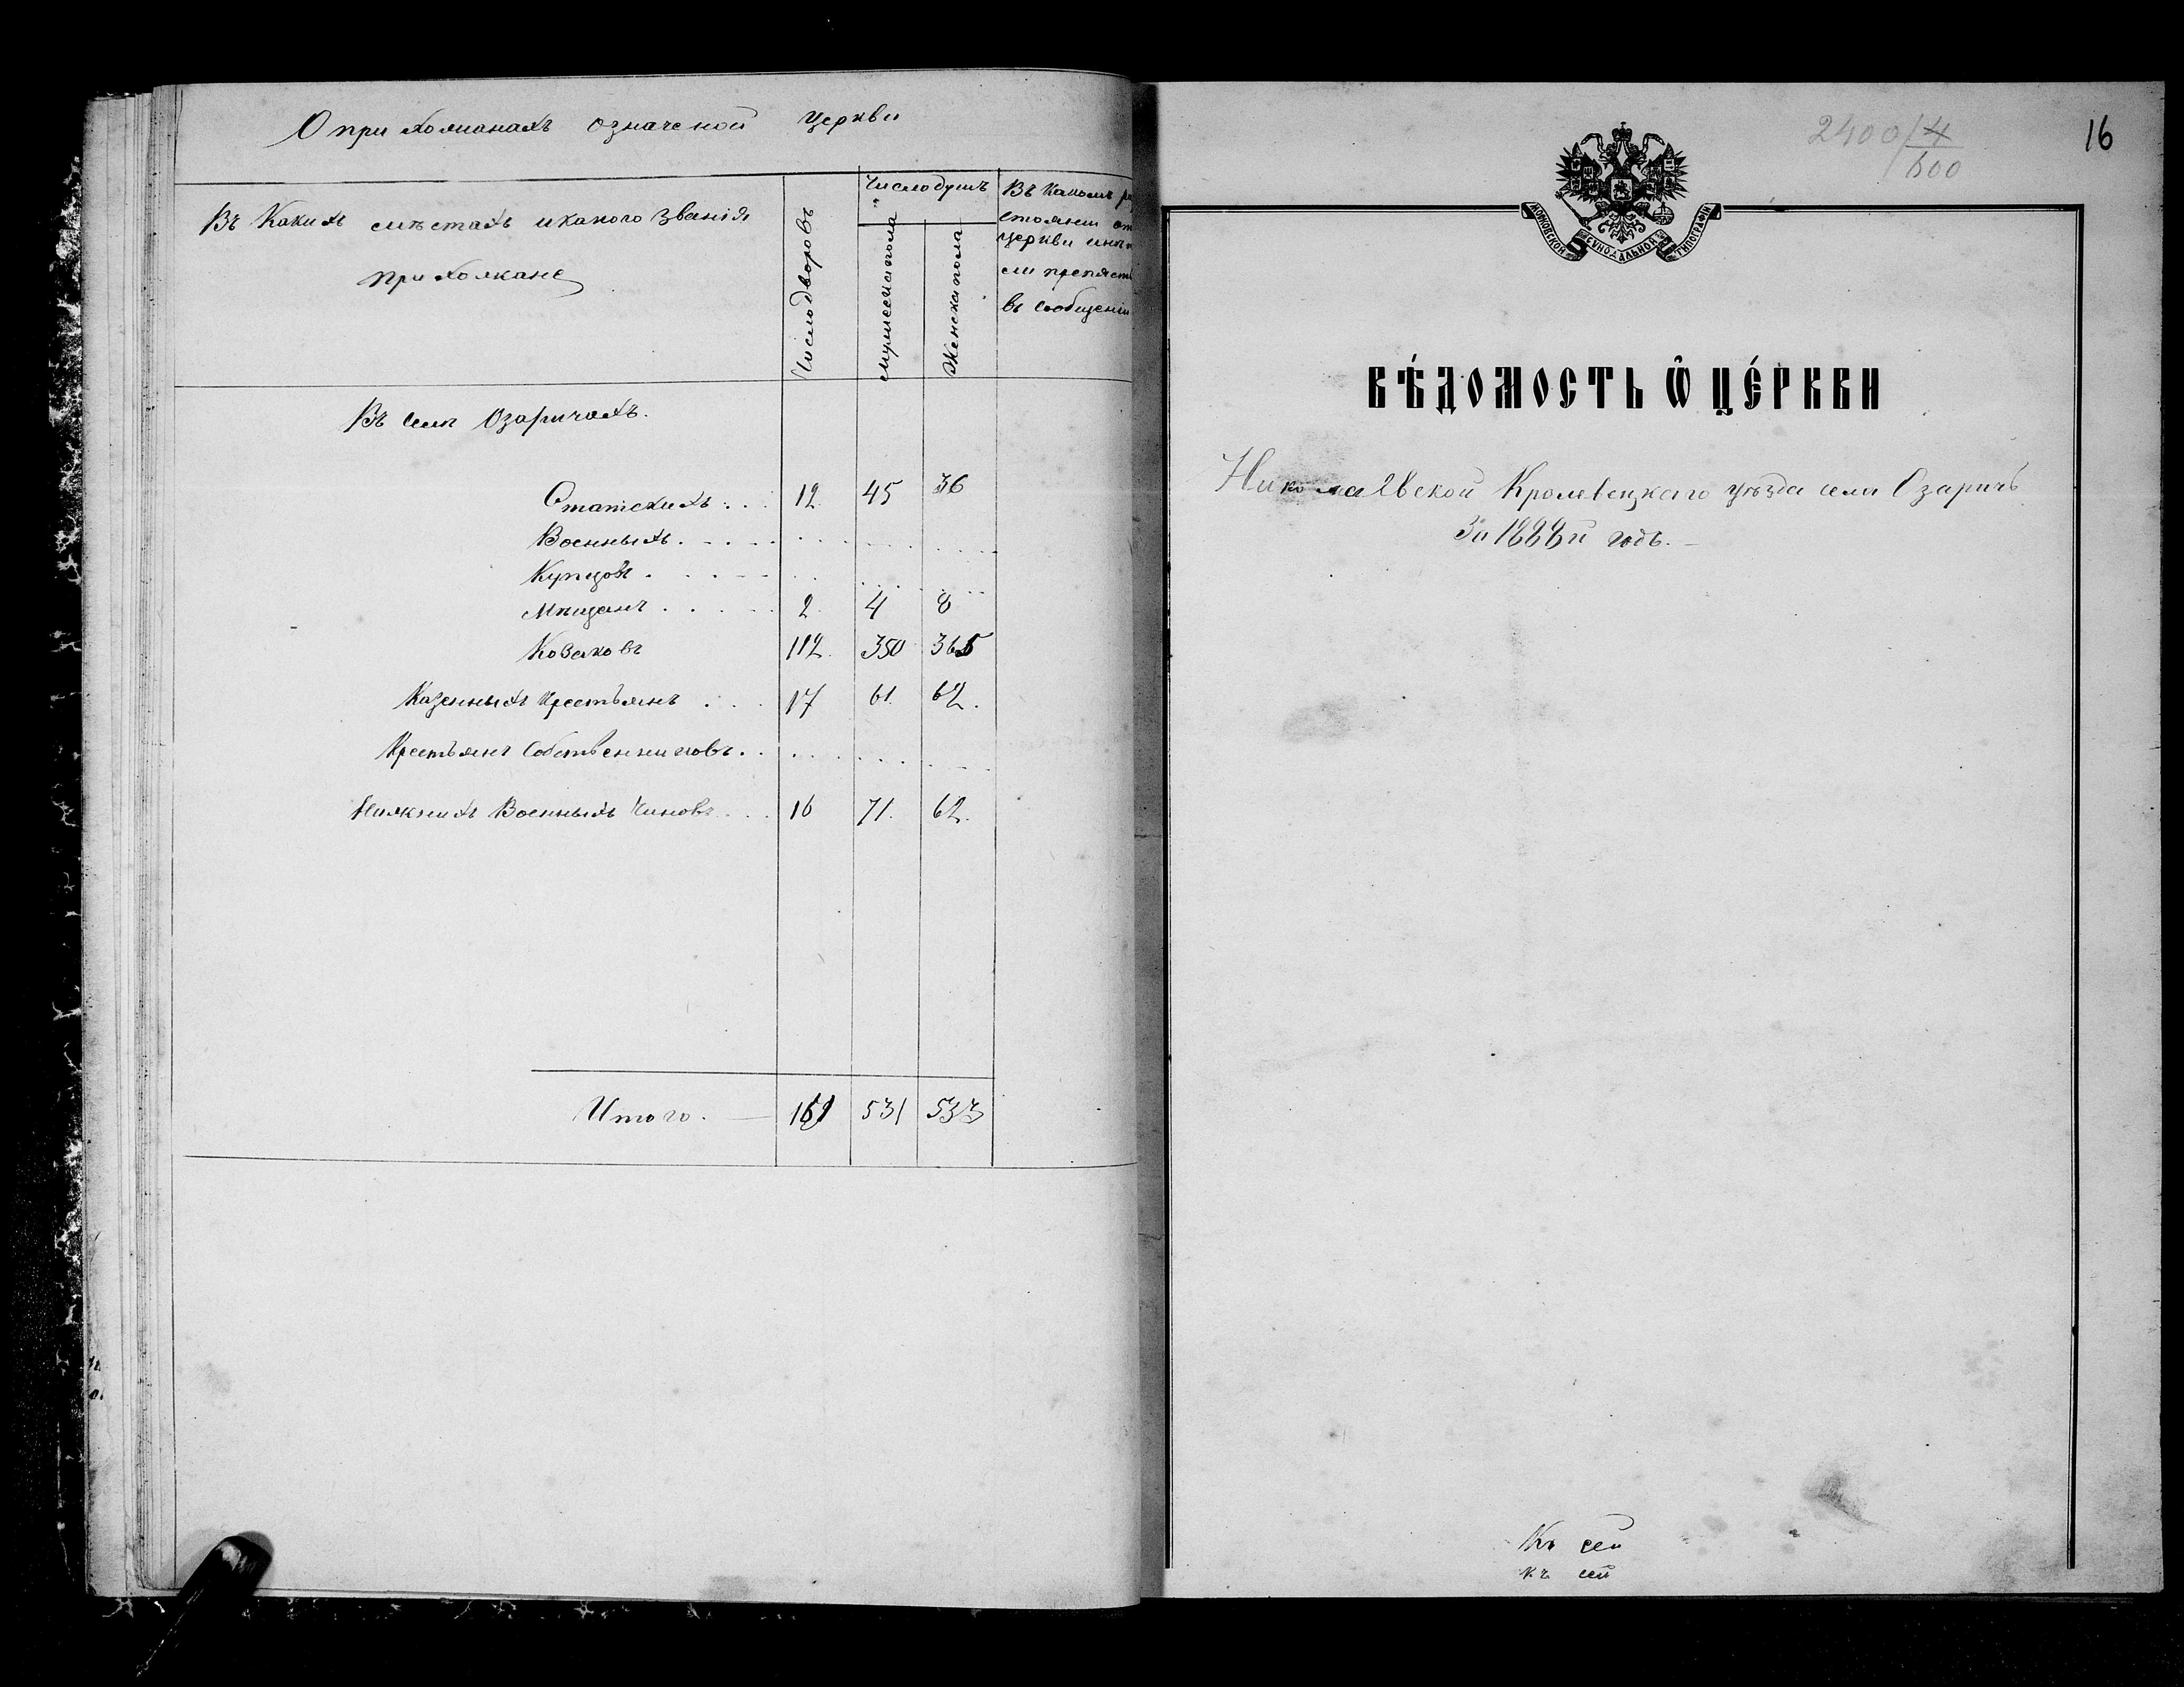 О прихожанахъ означеной церкви
Въ Какихъ мѣстахъ и какого званія
прихожане
Число дворовъ
Число душъ
Мужеска пола
Женска пола
Въ Какомъ ра
стоянии от
церкви и нѣт
ли препятст
въ сообщении
Въ селѣ Озаричахъ.
Статскихъ . . . 12 45 36
Военныхъ. . . . .
Купцовъ . . . . .
Мѣщанъ . . . . 2 4 8
Козаковъ 112. 350 365
Казенныхъ Крестьянъ . . . 17 61. 62.
Крестьянъ Собственниковъ. . .
Нижнихъ Военныхъ Чиновъ . . . 16 71. 62.
Итого. — 531 533
2400/4
600
16
МОСКОВСКОЙ СУНОДАЛЬНОЙ ТИПОГРАФІИ
ВѢ́ДОМОСТЬ Ѽ ЦЕ́РКВИ
Николаевской Кролевецкаго уѣзда села Озаричъ
За 1888й годъ. —
Къ сей
къ сей